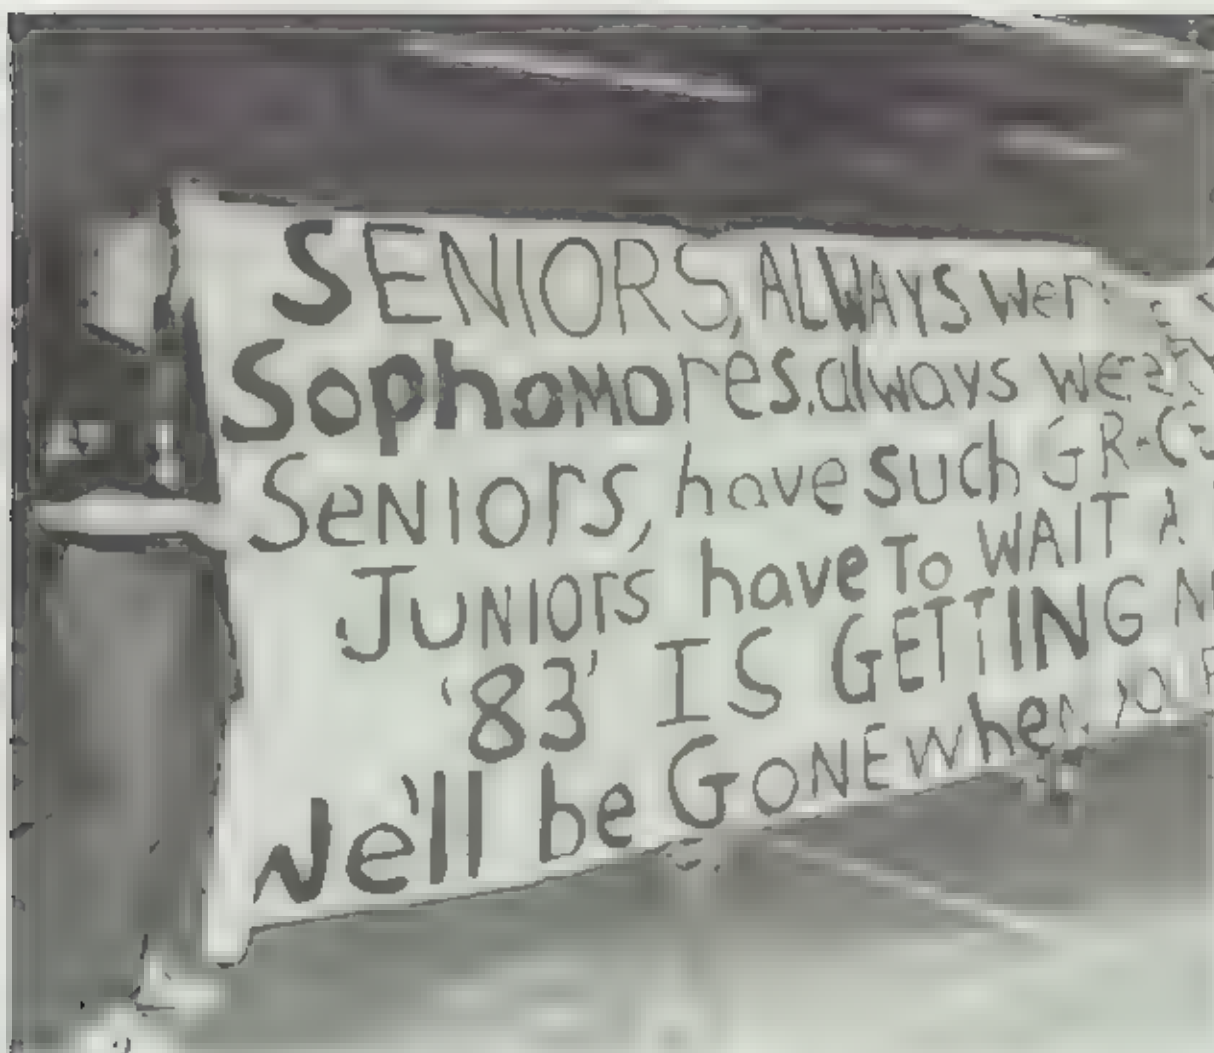 SENIORS, ALWAYS
Sophomores, always
SeNIOrS, have such
JUNIOrS have To WAIT A
'83' IS GETTING
We'll be GONE when